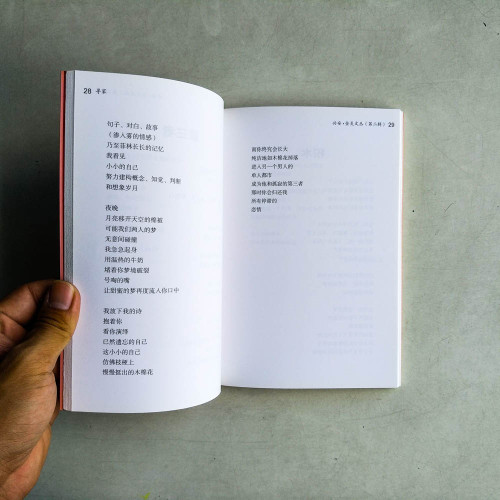 28 寻家
句子、对白、故事
（渗入雾的情感）
乃至菲林长长的记忆
我看见
小小的自己
努力建构概念、知觉、判断
和想象岁月
夜晚
月亮移开天空的棉被
可能我们两人的梦
无意间碰撞
我急急起身
用温热的牛奶
堵着你梦境破裂
号啕的嘴
让甜蜜的梦再度流入你口中
我放下我的诗
抱着你
看你演绎
已然遗忘的自己
这小小的自己
仿佛枝梗上
慢慢挺出的木棉花
（第二辑） 29
而你终究会长大
纯洁地如木棉花掉落
进入另一个男人的
单人都市
成为他和孤寂的第三者
那时你会归还我
所有停滞的
恋情